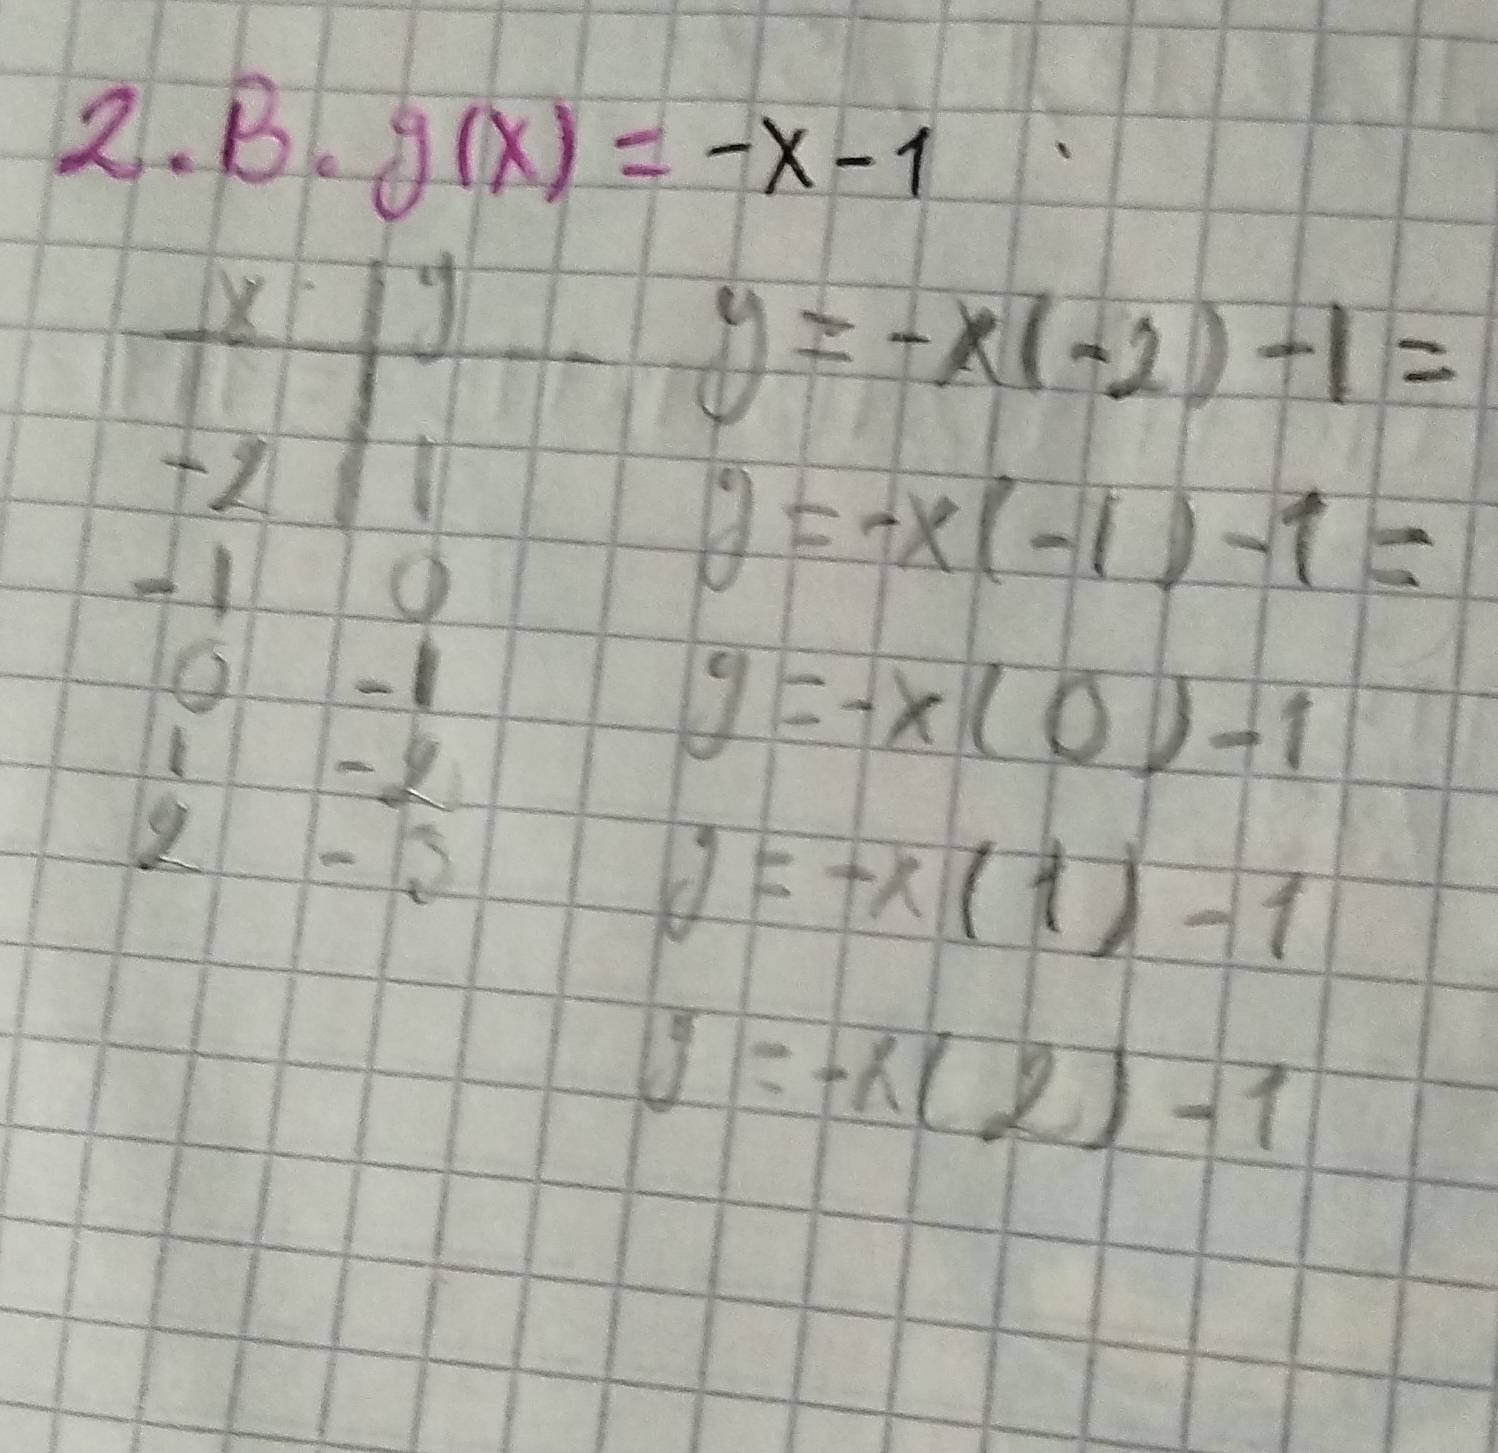 2.B. g(x) = -x-1
x | y
y = -x(-2) -1 =
-2 | 1
y = -x(-1) -1 =
-1 0
0 -1
y = -x(0) -1
1 -2
2 -3
y = -x(1) -1
y = -x(2) -1